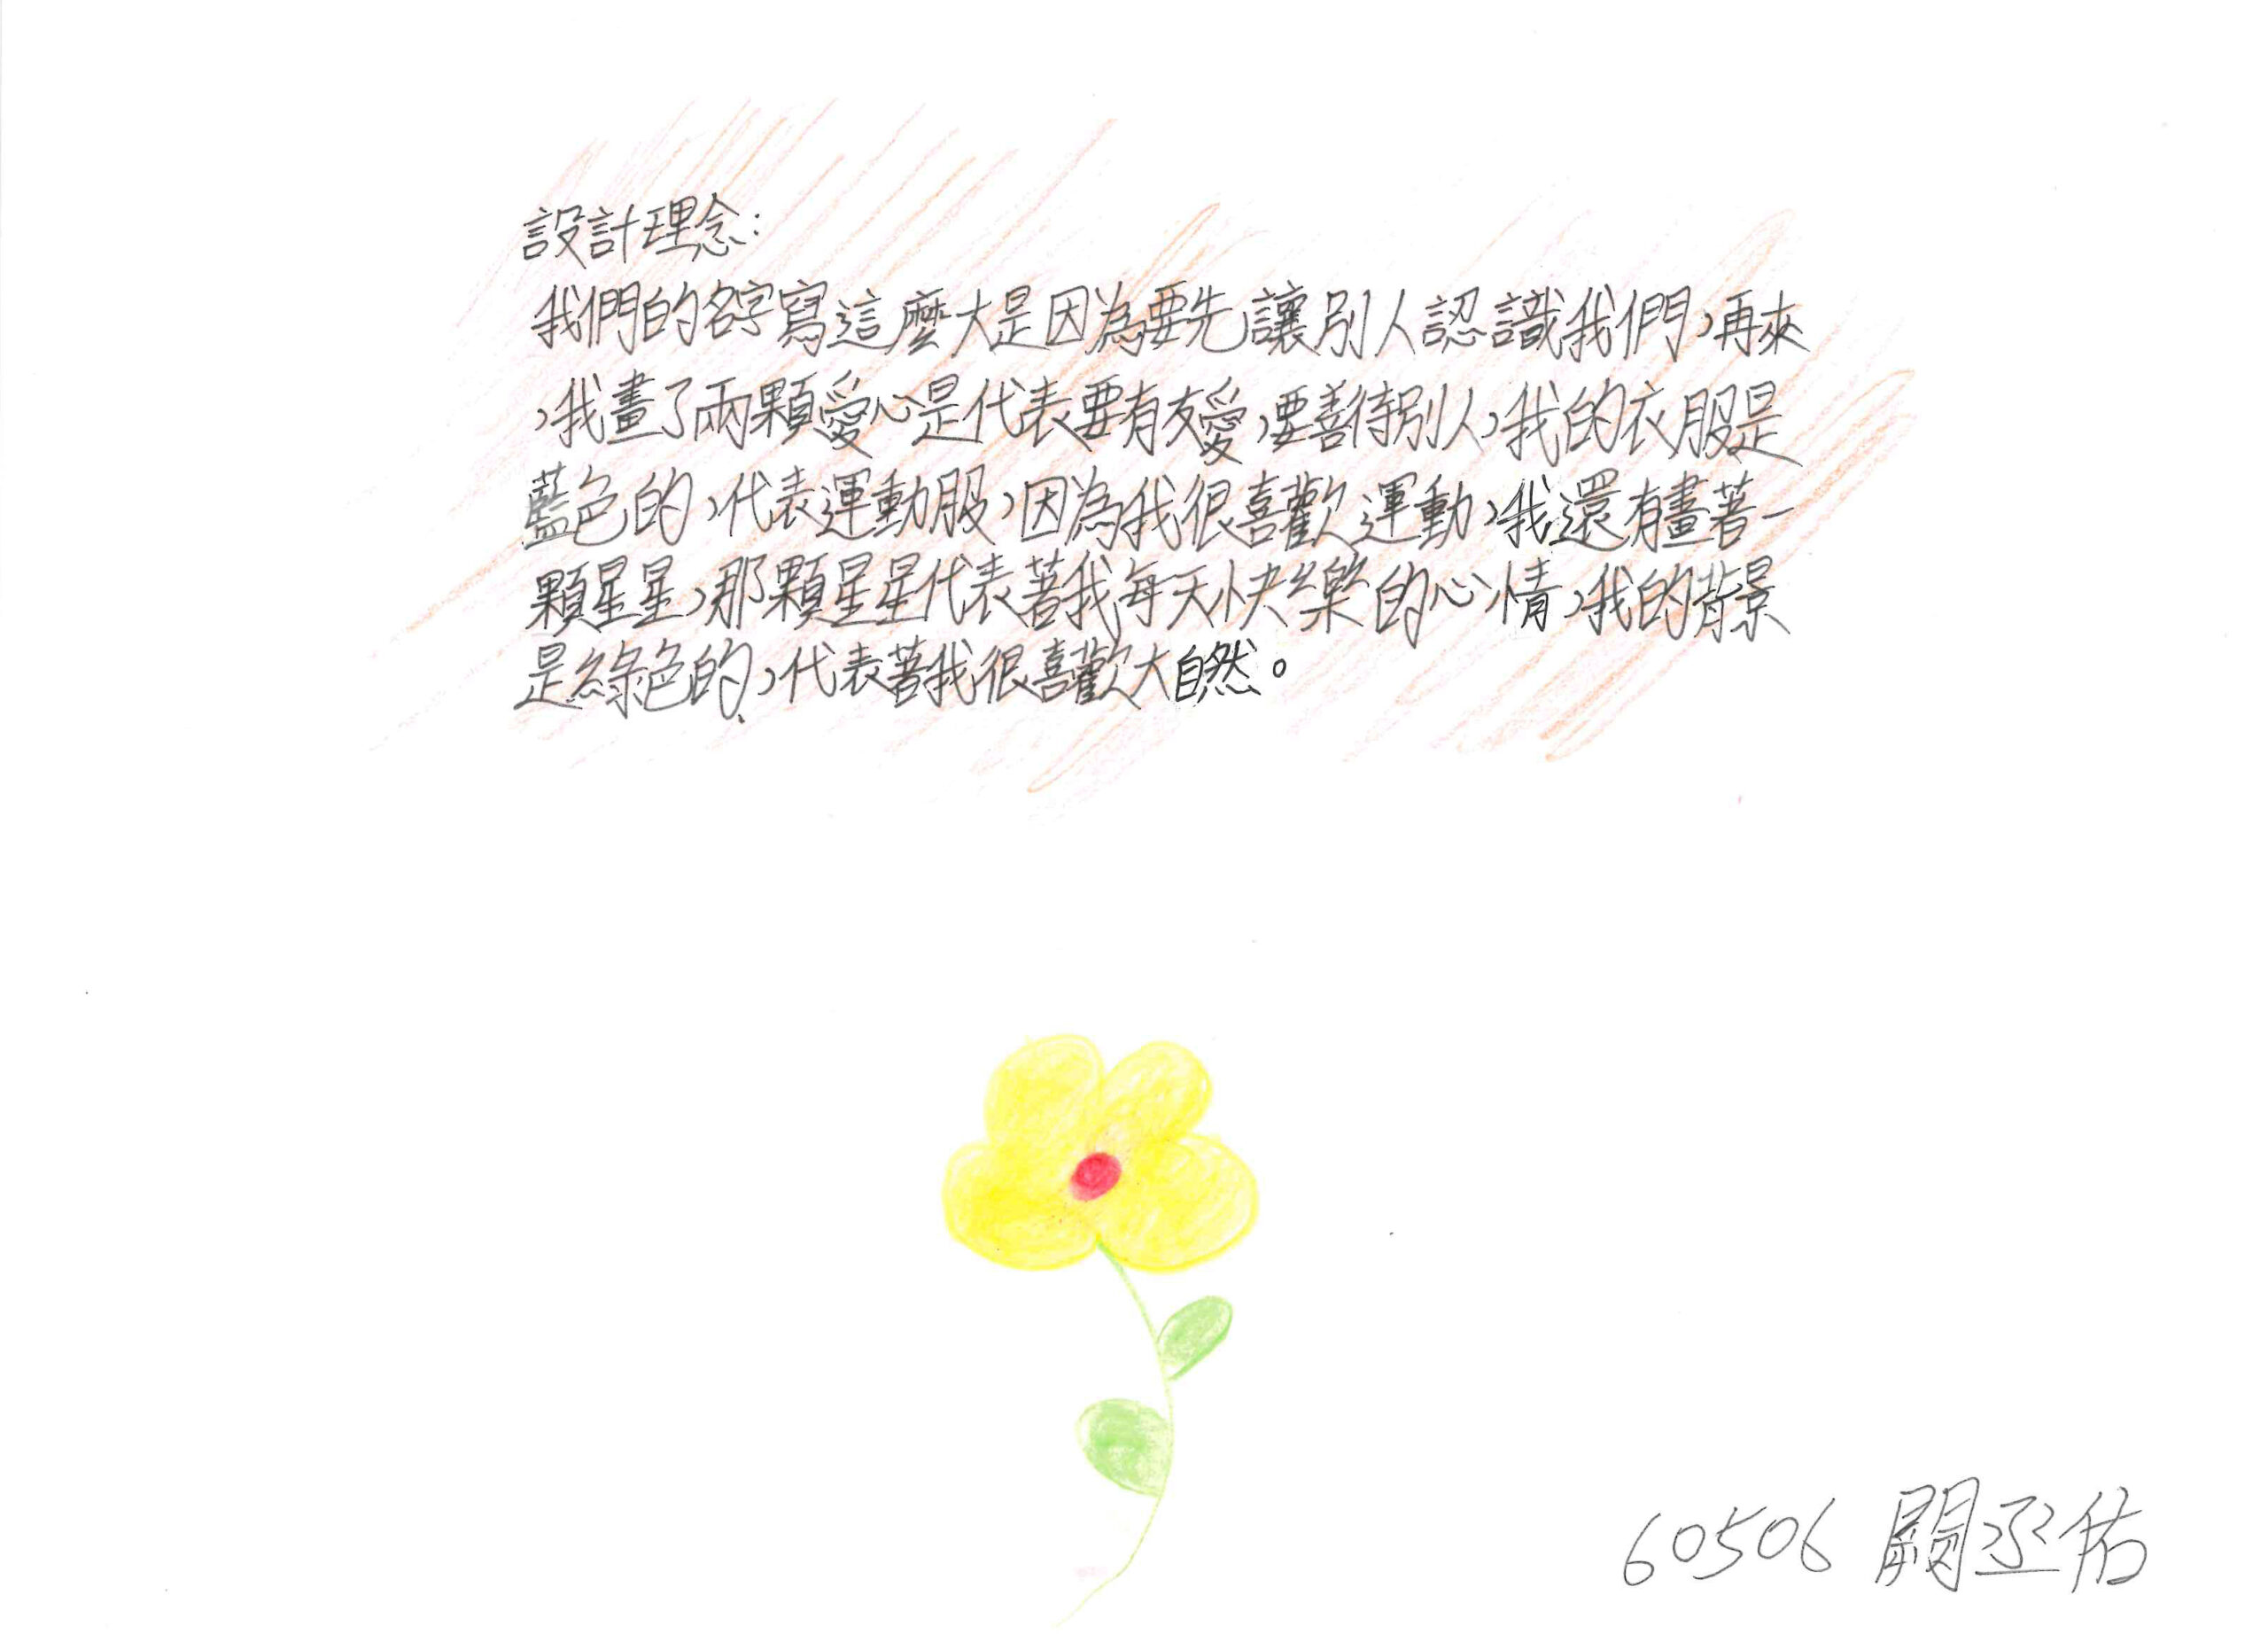 設計理念:
我們的名字寫這麼大是因為要先讓別人認識我們,再來
,我畫了兩顆愛心是代表要有友愛,要善待別人,我的衣服是
藍色的,代表運動服,因為我很喜歡運動,我還有畫著一
顆星星,那顆星星代表著我每天快樂的心情,我的背景
是綠色的,代表著我很喜歡大自然。
60506 闕丞佑